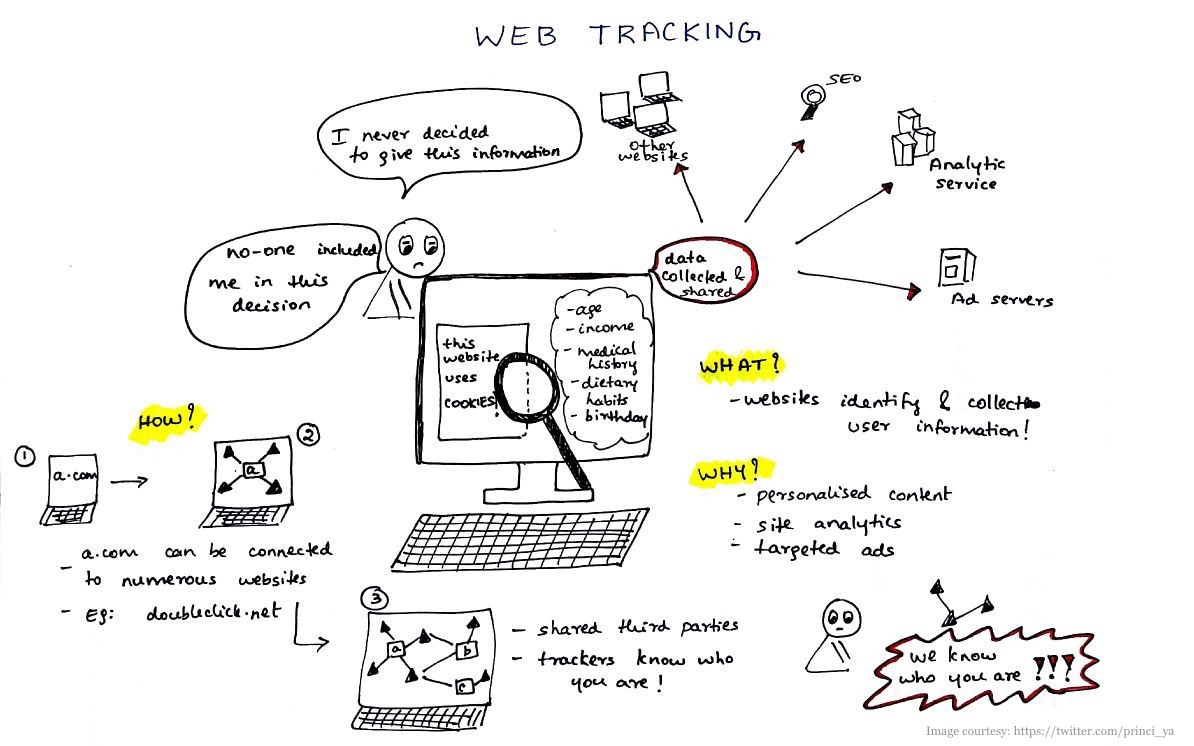 WEB TRACKING
I never decided
to give this information
no-one included
me in this
decision
other
websites
SEO
Analytic
service
Ad servers
data
collected &
shared
this
website
uses
COOKIES!
- age
- income
- medical
history
- dietary
habits
- birthday
WHAT?
- websites identify & collect
user information!
WHY?
- personalised content
- site analytics
- targeted ads
HOW?
1
a.com
2
a
- a.com can be connected
to numerous websites
- Eg: doubleclick.net
3
a
b
c
- shared third parties
- trackers know who
you are!
we know
who you are !!!
Image courtesy: https://twitter.com/princi_ya